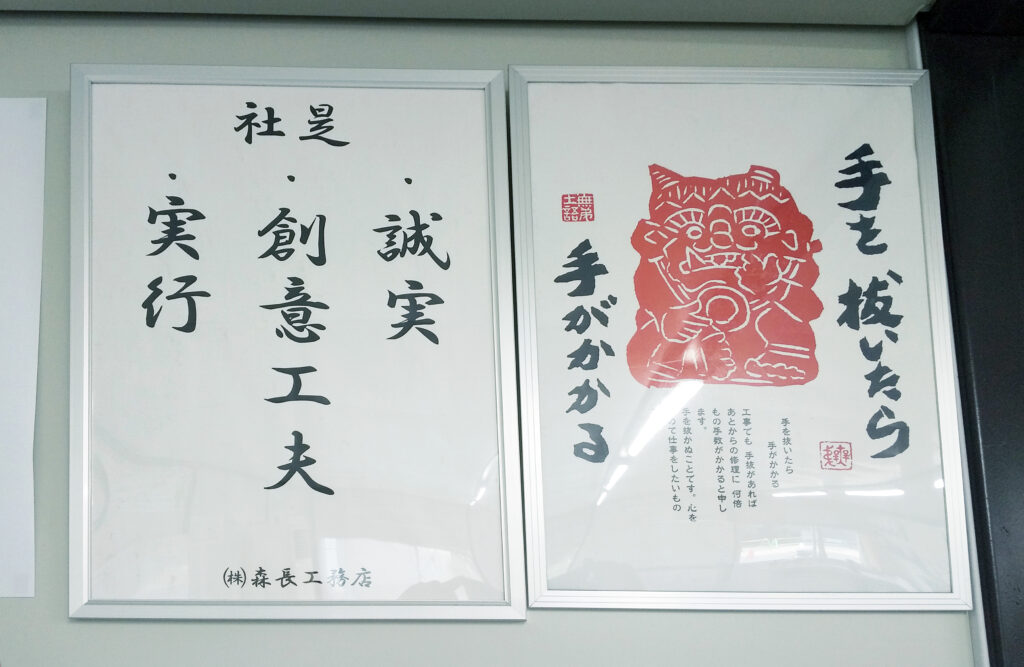 社是
・誠実
・創意工夫
・実行
㈱森長工務店
手を抜いたら
手がかかる
手を抜いたら
手がかかる
工事でも 手抜があれば
あとからの修理に 何倍
もの手数がかかると申し
ます。
手を抜かぬことです。心を
て仕事をしたいもの